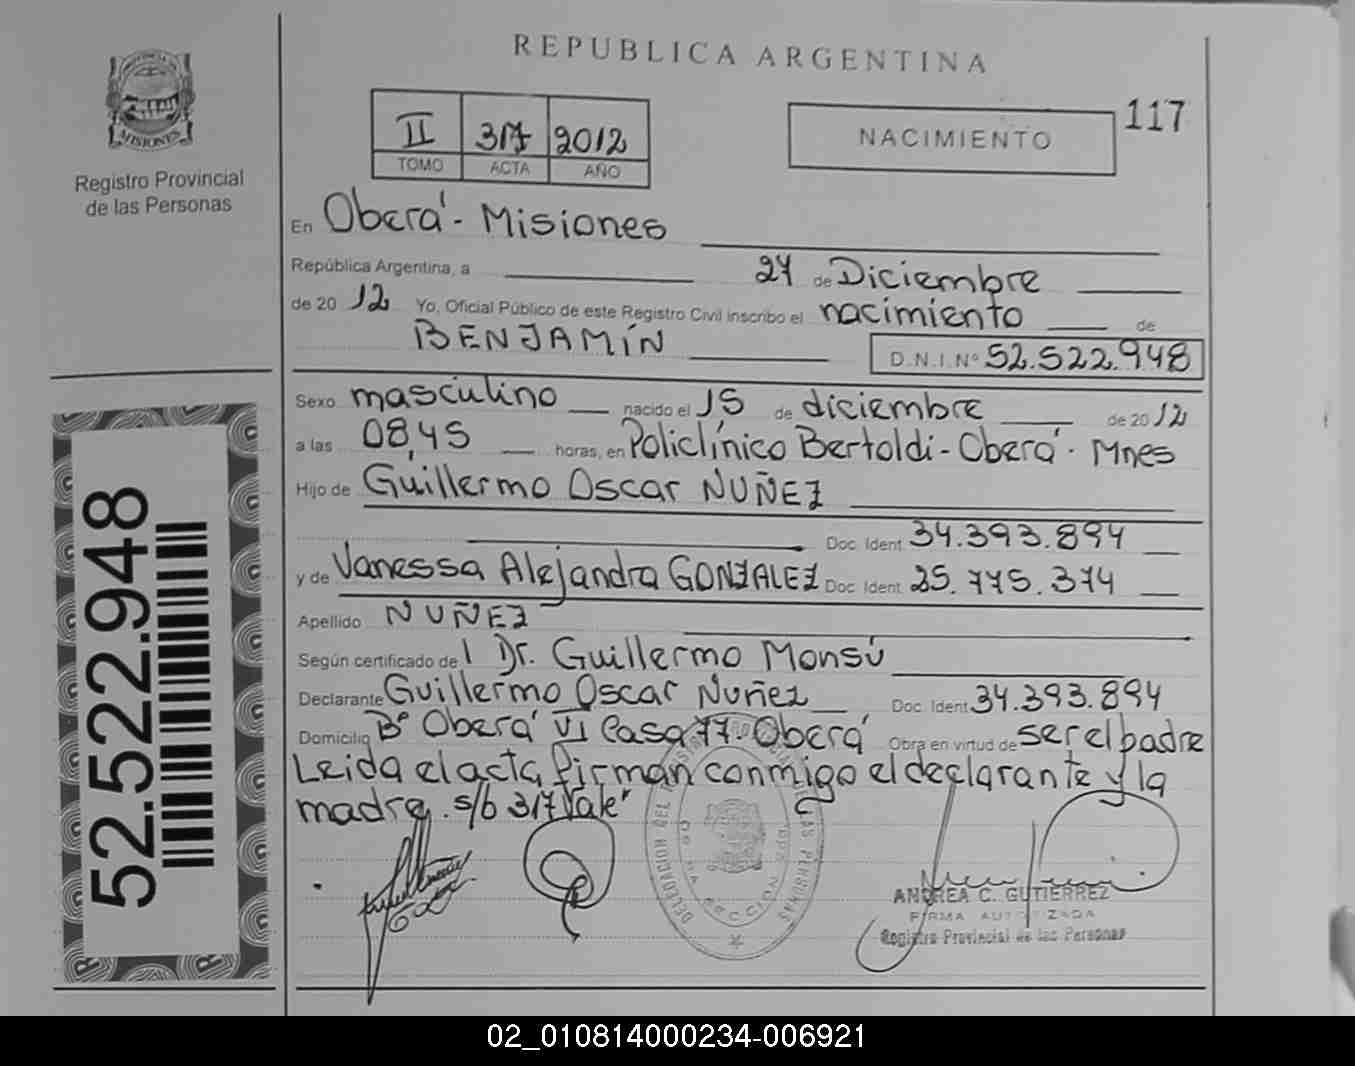 REPUBLICA ARGENTINA
MISIONES
Registro Provincial
de las Personas
II 317 2012
TOMO ACTA AÑO
NACIMIENTO
117
En Oberá - Misiones
República Argentina, a 27 de Diciembre
de 2012 Yo, Oficial Público de este Registro Civil inscribo el nacimiento de
BENJAMÍN D.N.I.Nº 52.522.948
Sexo masculino nacido el 15 de diciembre de 2012
a las 08,45 horas, en Policlínico Bertoldi - Oberá - Mnes
Hijo de Guillermo Oscar NUÑEZ
Doc. Ident. 34.393.894
y de Vanessa Alejandra GONZALEZ Doc. Ident. 25.775.374
Apellido NUÑEZ
Según certificado de l Dr. Guillermo Monsú
Declarante Guillermo Oscar Nuñez Doc. Ident. 34.393.894
Domicilio Bº Oberá VI Casa 77 - Oberá Obra en virtud de ser el padre
Leida el acta, firman conmigo el declarante y la
madre. s/b 317 Vale"
ANDREA C. GUTIERREZ
FIRMA AUTORIZADA
Registro Provincial de las Personas
52.522.948
02_010814000234-006921